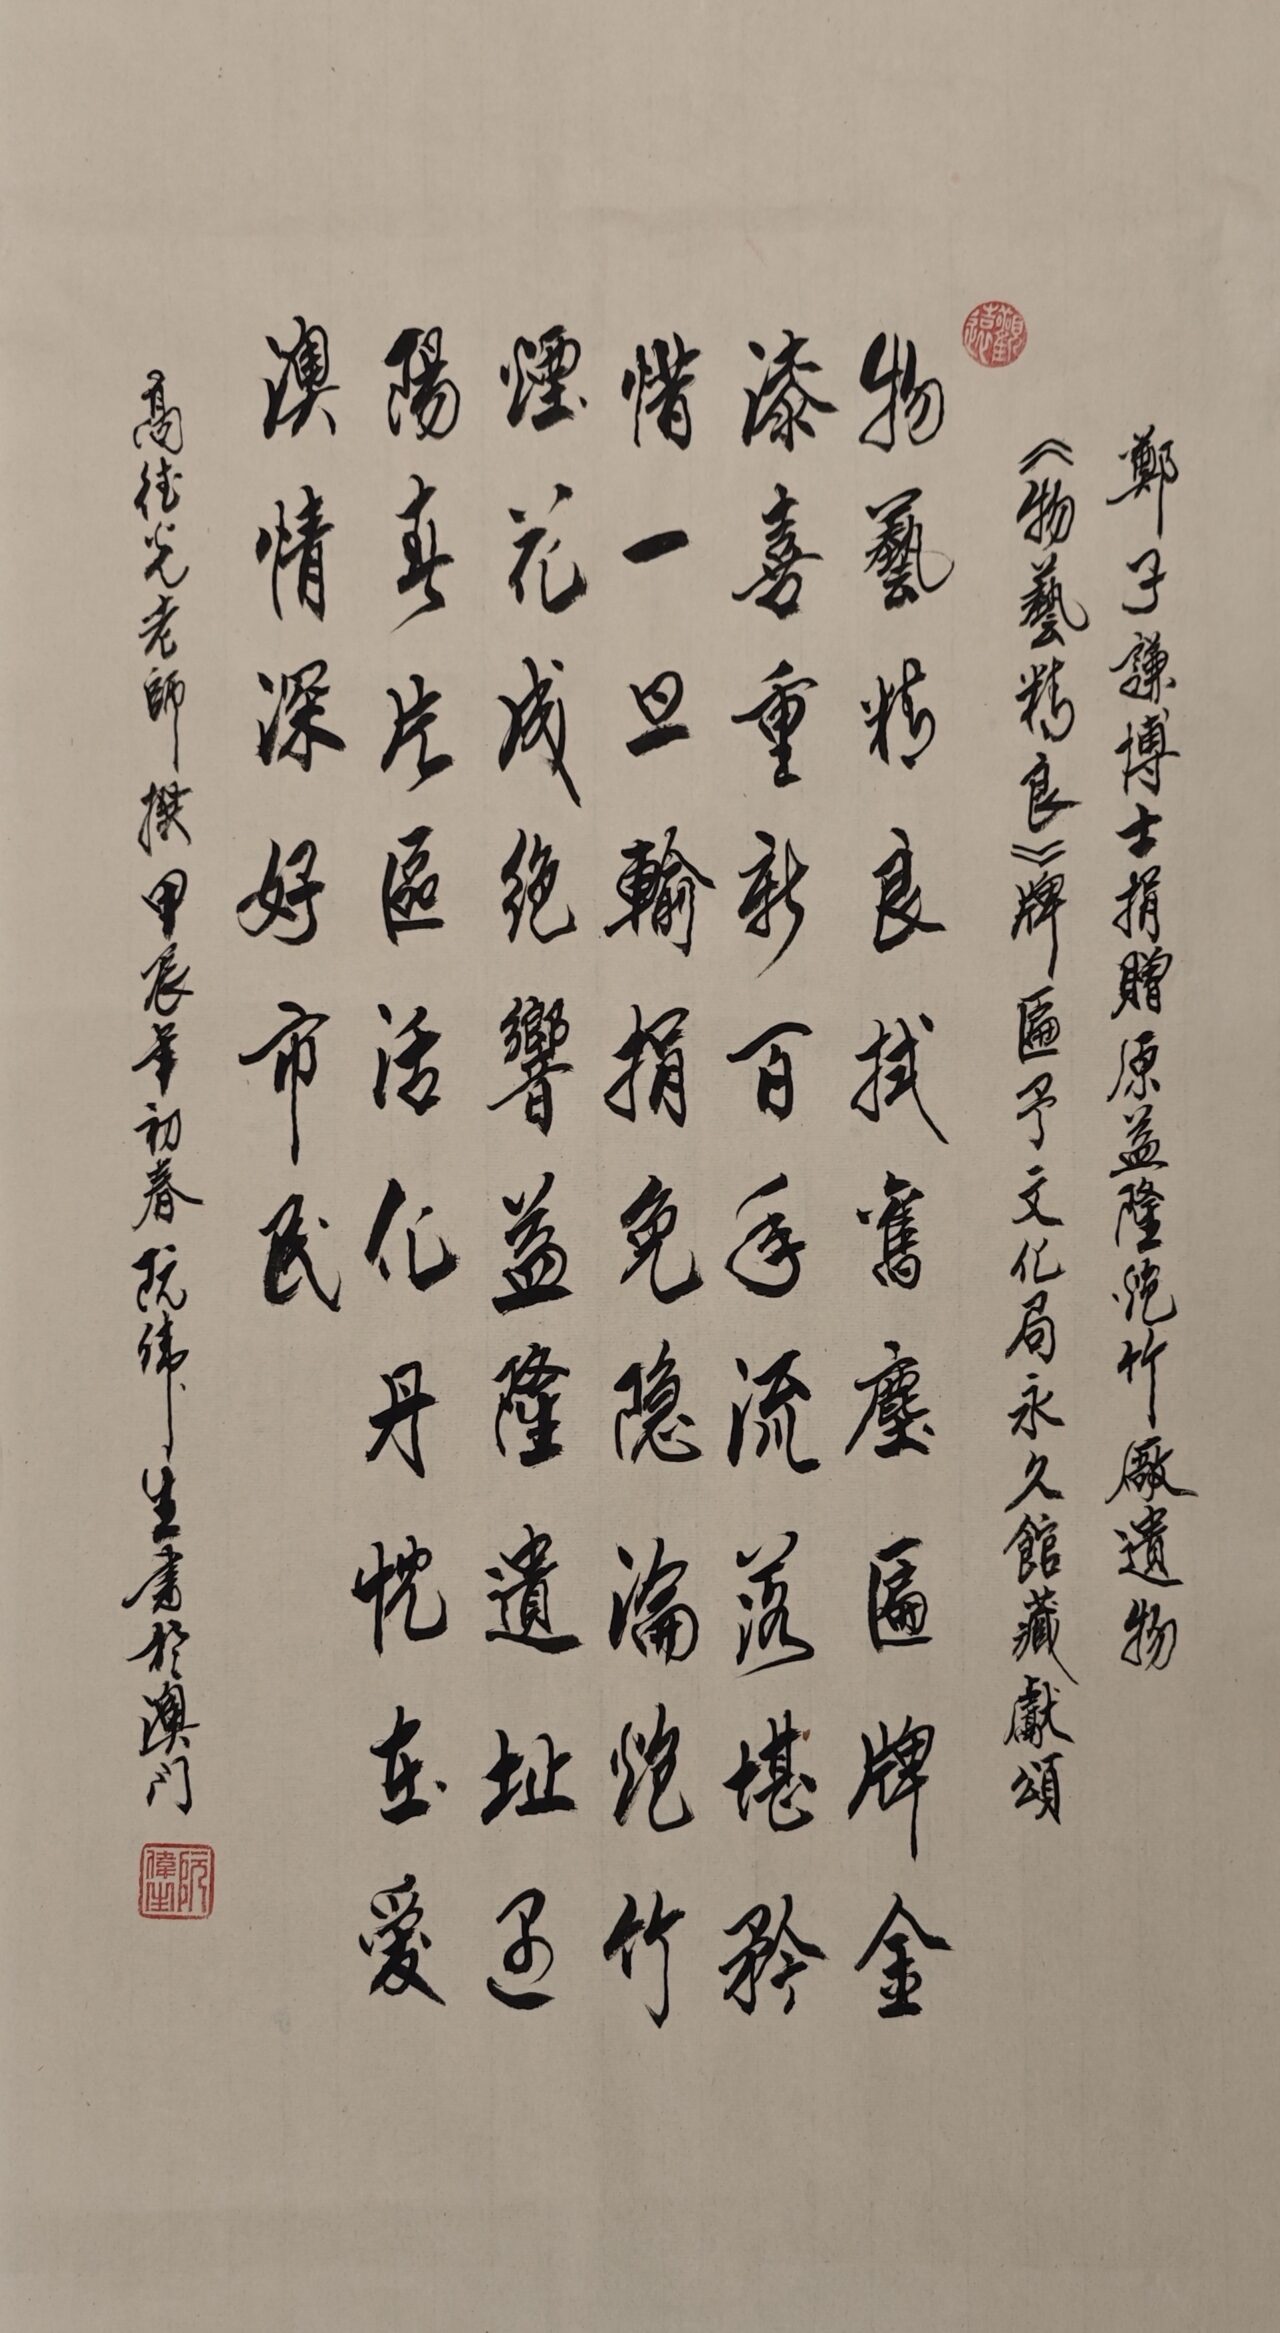 鄭子謙博士捐贈原益隆炮竹廠遺物
《物藝精良》牌匾予文化局永久館藏獻頌
物藝精良拭舊塵匾牌金
漆喜重新百年流落堪矜
惜一旦輸捐免隱淪炮竹
煙花成絕響益隆遺址遇
陽春片區活化丹忱在愛
澳情深好市民
高德光老師撰甲辰年初春阮偉生書於澳门
阮偉生